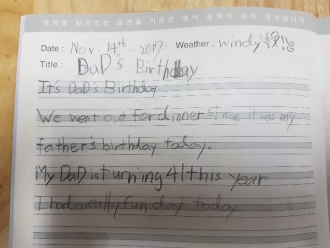 Date: Nov. 14th. 2017 Weather: windy
Title: DaD's Birthday
It's DaD's Birthday
We went out for dinner since it was my
father's birthday today.
My DaD is turning 41 this year
I had a really fun day today.